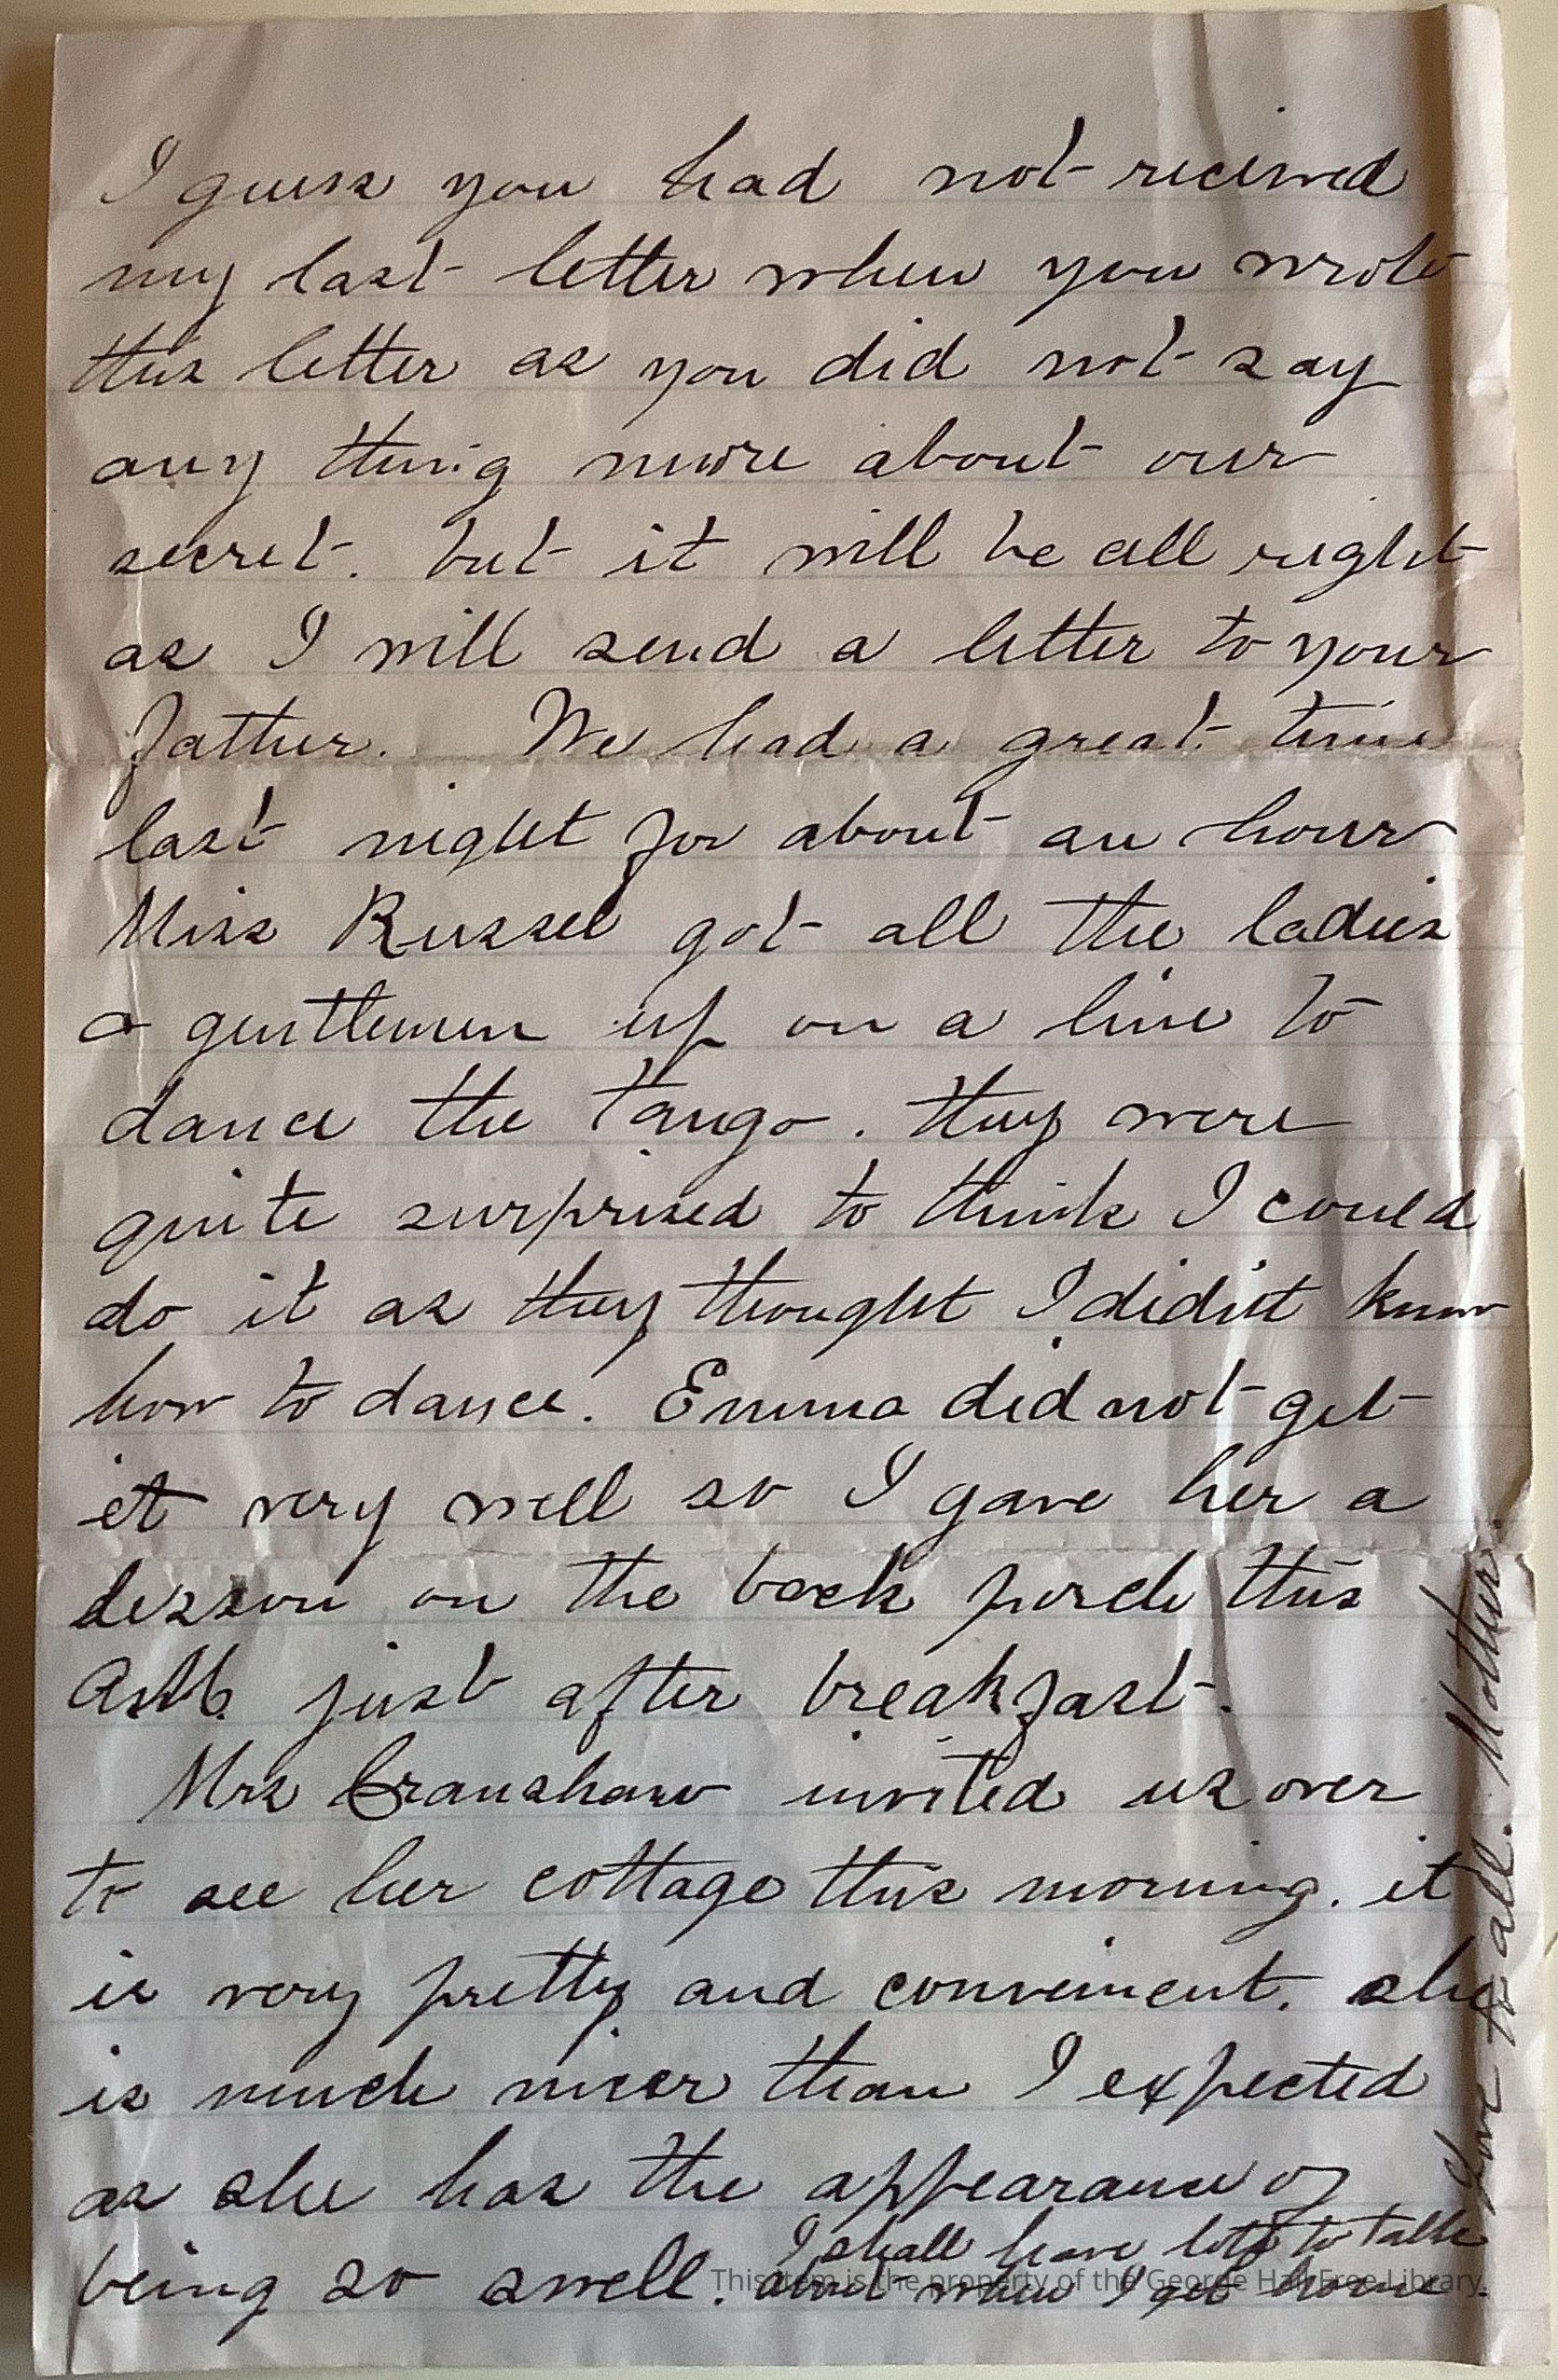 I guess you had not recieved
my last letter when you wrote
this letter as you did not say
any thing more about our
secret. but it will be all right
as I will send a letter to your
father. We had a great time
last night for about an hour
Miss Russel got all the ladies
& gentlemen up on a line to
dance the Tango. they were
quite surprised to think I could
do it as they thought I didnt know
how to dance. Emma did not get
it very well so I gave her a
lesson on the back porch this
A.M. just after breakfast.
Mrs Cranshaw invited us over
to see her cottage this morning. it
is very pretty and convenient. she
is much nicer than I expected
as she has the appearance of
being so swell. I shall have lots to talk
about when I get home.
Love to all. Mother.
This item is the property of the George Hail Free Library.